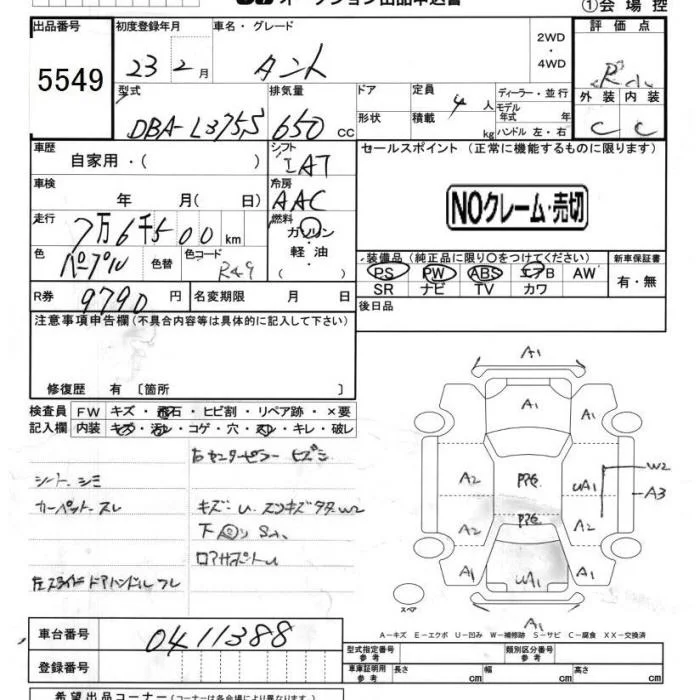 オークション出品申込書
①会場控
出品番号
5549
初度登録年月
23 2月
車名・グレード
タント
2WD
・
4WD
評価点
R
外装 内装
C C
型式
DBA-L375S
排気量
650 CC
ドア
形状
定員
4 人
積載
kg
ディーラー・並行
モデル
年式 年
ハンドル 左・右
車歴
自家用・( )
シフト
IAT
セールスポイント (正常に機能するものに限ります)
車検
年 月( 日)
冷房
AAC
NOクレーム・売切
走行
7万6千500 km
燃料
ガソリン
・
軽油
・
( )
色
パープル
色替
色コード
R49
装備品 (純正品に限り○をつけてください)
PS PW ABS エアB AW
SR ナビ TV カワ
新車保証書
有・無
R券
9790 円
名変期限 月 日
後日品
注意事項申告欄 (不具合内容等は具体的に記入して下さい)
修復歴 有 〔箇所 〕
検査員
記入欄
FW キズ・飛石・ヒビ割・リペア跡・×要
内装 キズ・汚レ・コゲ・穴・スレ・キレ・破レ
右センターピラー ヒズミ
シート シミ
カーペット スレ
キズ・U スンキズタタ W2
下 S A
ロアサポート U
左スライドドアハンドル スレ
A1
A1 A1
A2 PK uA1 W2
A3
A2 PK A2
A1 uA1 A1
スペア
A-キズ E-エクボ U-凹み W-補修跡 S-サビ C-腐食 XX-交換済
車台番号
0411388
登録番号
型式指定番号
参考
類別区分番号
参考
車庫証明用
参考
長さ cm 幅 cm 高さ cm
希望出品コーナー (コーナーは各会場により異なります)